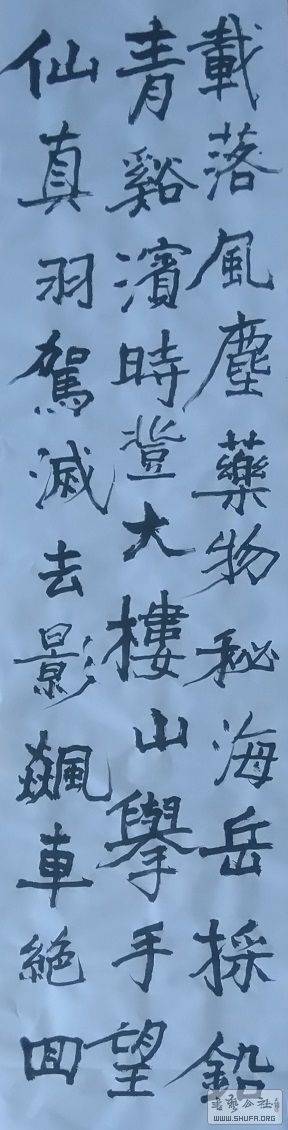 載落風塵藥物秘海岳採鉛
青谿濱時登大樓山舉手望
仙真羽駕滅去影飆車絕回
書藝公社
WWW.SHUFA.ORG